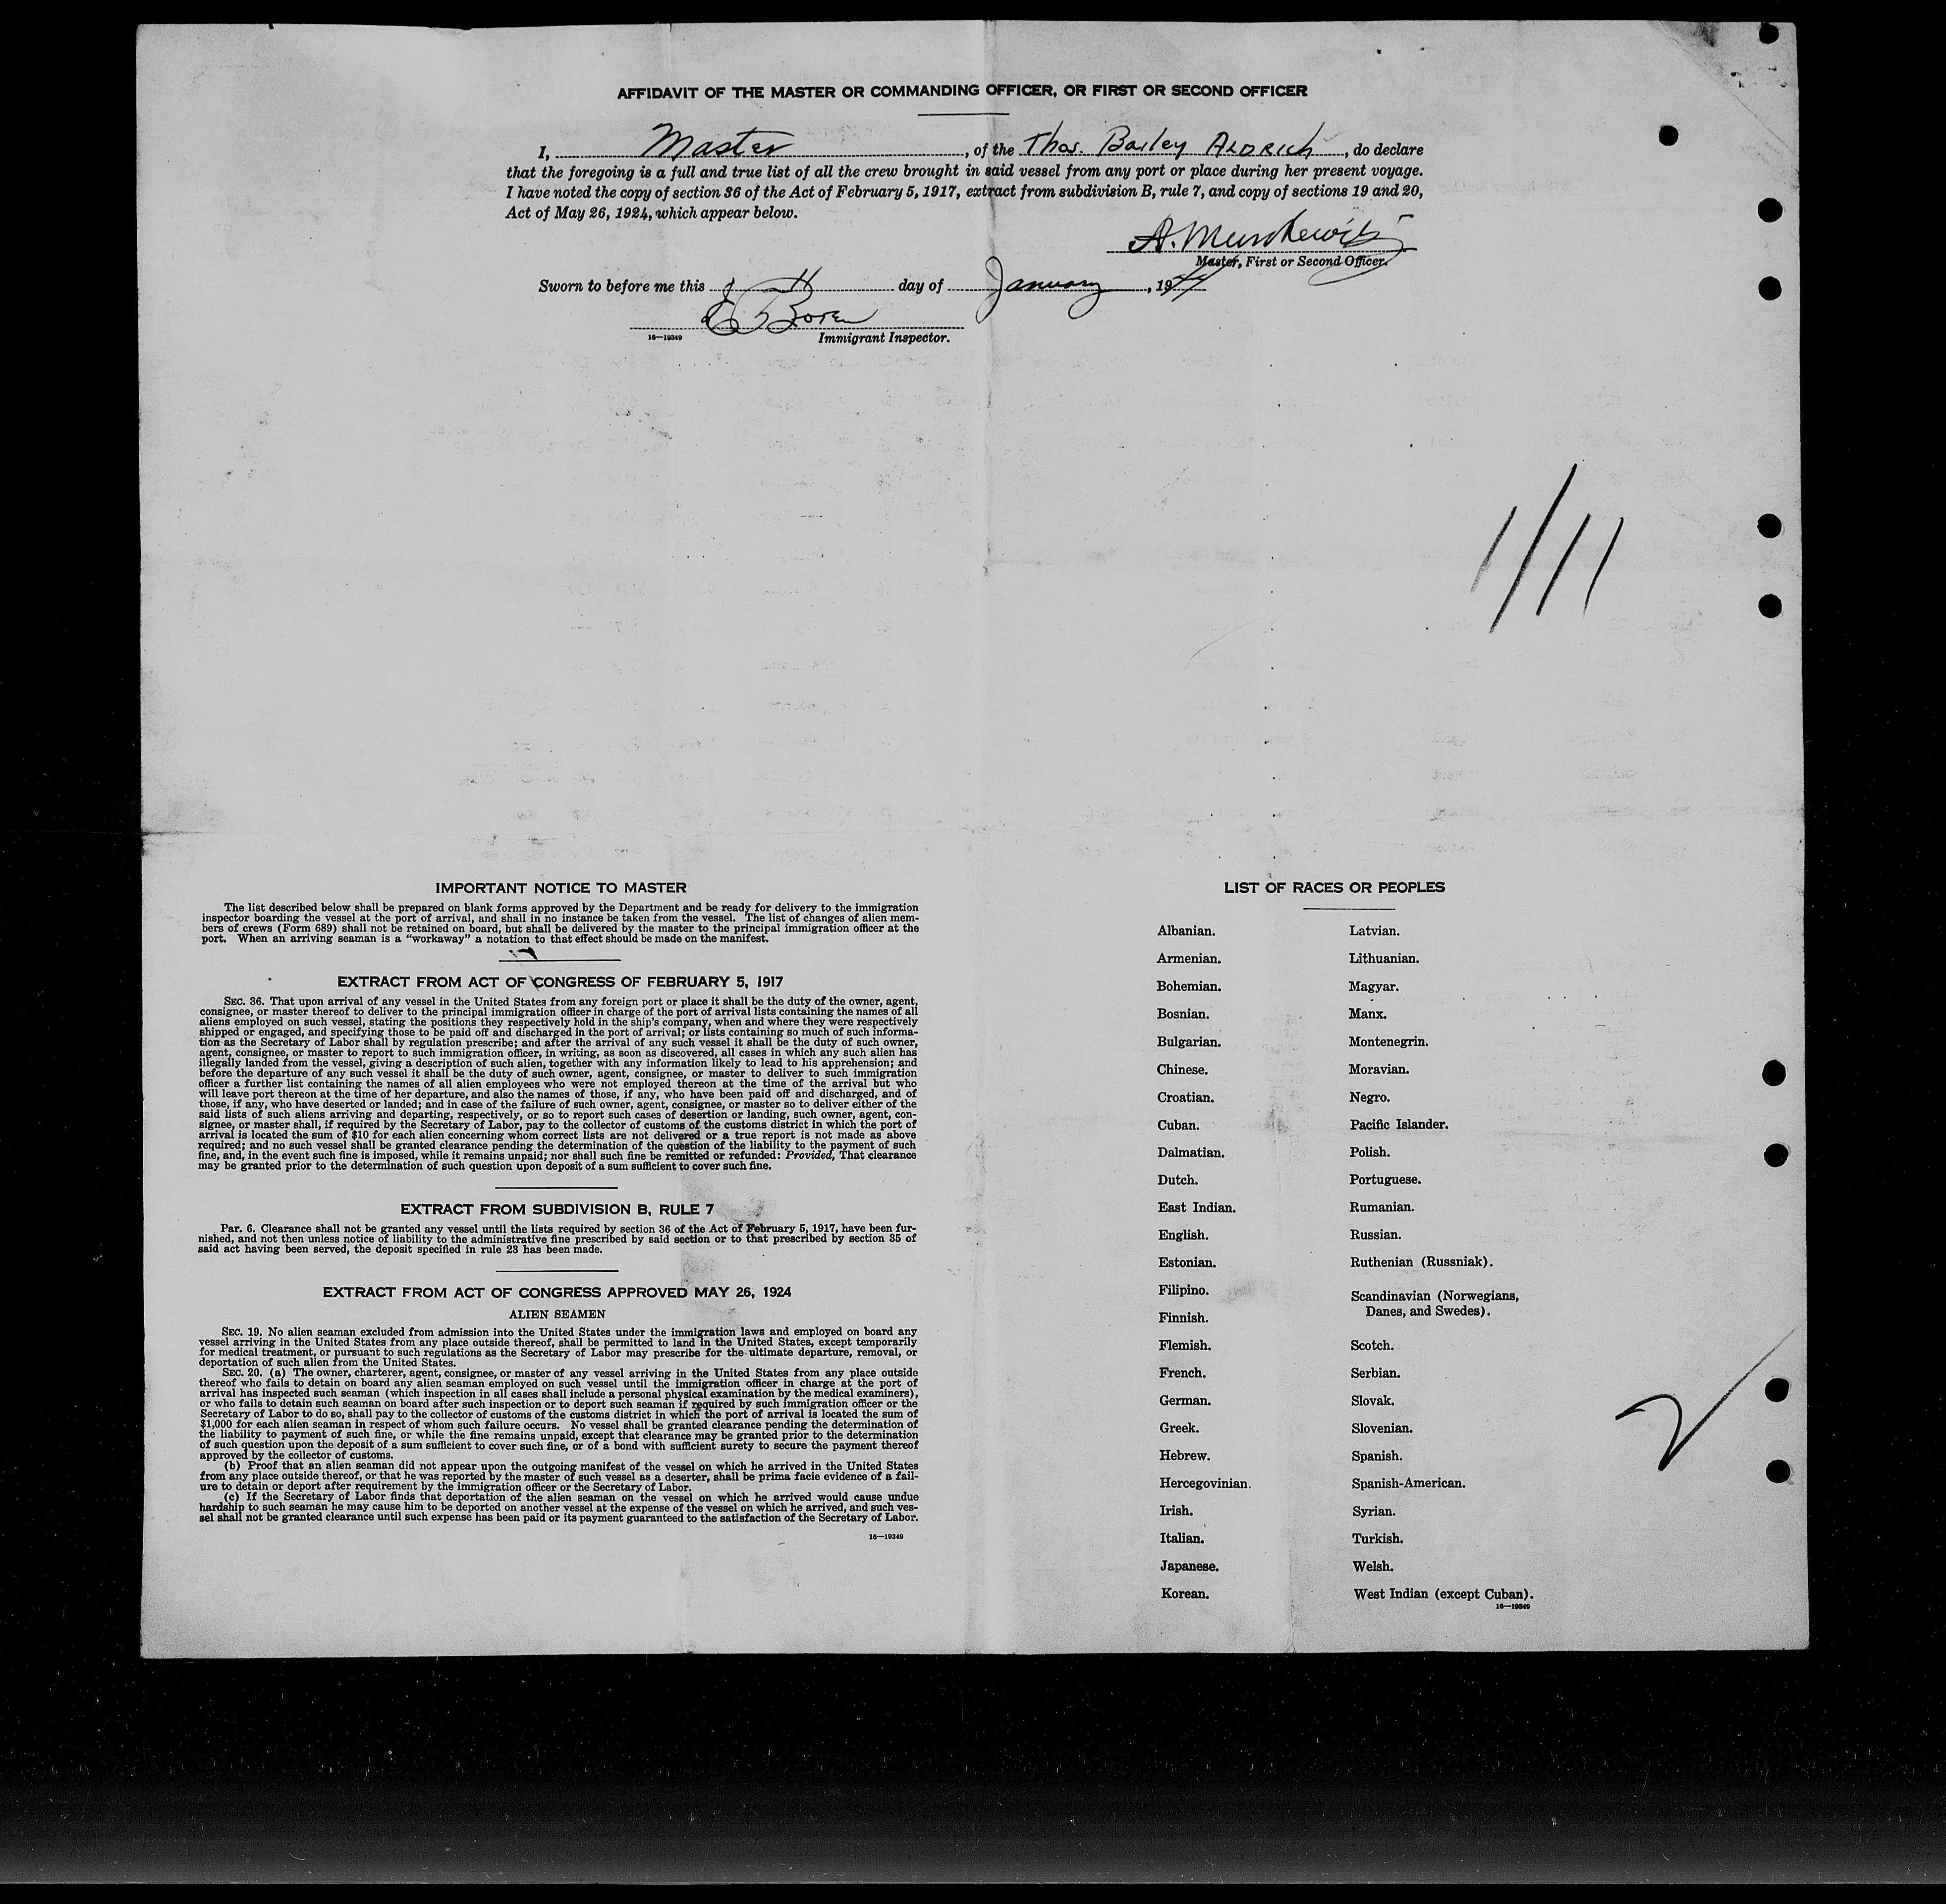 AFFIDAVIT OF THE MASTER OR COMMANDING OFFICER, OR FIRST OR SECOND OFFICER
I, Master, of the Thos. Bailey Aldrich, do declare
that the foregoing is a full and true list of all the crew brought in said vessel from any port or place during her present voyage.
I have noted the copy of section 36 of the Act of February 5, 1917, extract from subdivision B, rule 7, and copy of sections 19 and 20,
Act of May 26, 1924, which appear below.
A.
Master, First or Second Officer.
Sworn to before me this 11 day of January, 1944
Boren
16—19349 Immigrant Inspector.
1/11
IMPORTANT NOTICE TO MASTER
The list described below shall be prepared on blank forms approved by the Department and be ready for delivery to the immigration
inspector boarding the vessel at the port of arrival, and shall in no instance be taken from the vessel. The list of changes of alien mem-
bers of crews (Form 689) shall not be retained on board, but shall be delivered by the master to the principal immigration officer at the
port. When an arriving seaman is a "workaway" a notation to that effect should be made on the manifest.
EXTRACT FROM ACT OF CONGRESS OF FEBRUARY 5, 1917
SEC. 36. That upon arrival of any vessel in the United States from any foreign port or place it shall be the duty of the owner, agent,
consignee, or master thereof to deliver to the principal immigration officer in charge of the port of arrival lists containing the names of all
aliens employed on such vessel, stating the positions they respectively hold in the ship's company, when and where they were respectively
shipped or engaged, and specifying those to be paid off and discharged in the port of arrival; or lists containing so much of such informa-
tion as the Secretary of Labor shall by regulation prescribe; and after the arrival of any such vessel it shall be the duty of such owner,
agent, consignee, or master to report to such immigration officer, in writing, as soon as discovered, all cases in which any such alien has
illegally landed from the vessel, giving a description of such alien, together with any information likely to lead to his apprehension; and
before the departure of any such vessel it shall be the duty of such owner, agent, consignee, or master to deliver to such immigration
officer a further list containing the names of all alien employees who were not employed thereon at the time of the arrival but who
will leave port thereon at the time of her departure, and also the names of those, if any, who have been paid off and discharged, and of
those, if any, who have deserted or landed; and in case of the failure of such owner, agent, consignee, or master so to deliver either of the
said lists of such aliens arriving and departing, respectively, or so to report such cases of desertion or landing, such owner, agent, con-
signee, or master shall, if required by the Secretary of Labor, pay to the collector of customs of the customs district in which the port of
arrival is located the sum of $10 for each alien concerning whom correct lists are not delivered or a true report is not made as above
required; and no such vessel shall be granted clearance pending the determination of the question of the liability to the payment of such
fine, and, in the event such fine is imposed, while it remains unpaid; nor shall such fine be remitted or refunded: Provided, That clearance
may be granted prior to the determination of such question upon deposit of a sum sufficient to cover such fine.
EXTRACT FROM SUBDIVISION B, RULE 7
Par. 6. Clearance shall not be granted any vessel until the lists required by section 36 of the Act of February 5, 1917, have been fur-
nished, and not then unless notice of liability to the administrative fine prescribed by said section or to that prescribed by section 35 of
said act having been served, the deposit specified in rule 23 has been made.
EXTRACT FROM ACT OF CONGRESS APPROVED MAY 26, 1924
ALIEN SEAMEN
SEC. 19. No alien seaman excluded from admission into the United States under the immigration laws and employed on board any
vessel arriving in the United States from any place outside thereof, shall be permitted to land in the United States, except temporarily
for medical treatment, or pursuant to such regulations as the Secretary of Labor may prescribe for the ultimate departure, removal, or
deportation of such alien from the United States.
SEC. 20. (a) The owner, charterer, agent, consignee, or master of any vessel arriving in the United States from any place outside
thereof who fails to detain on board any alien seaman employed on such vessel until the immigration officer in charge at the port of
arrival has inspected such seaman (which inspection in all cases shall include a personal physical examination by the medical examiners),
or who fails to detain such seaman on board after such inspection or to deport such seaman if required by such immigration officer or the
Secretary of Labor to do so, shall pay to the collector of customs of the customs district in which the port of arrival is located the sum of
$1,000 for each alien seaman in respect of whom such failure occurs. No vessel shall be granted clearance pending the determination of
the liability to payment of such fine, or while the fine remains unpaid, except that clearance may be granted prior to the determination
of such question upon the deposit of a sum sufficient to cover such fine, or of a bond with sufficient surety to secure the payment thereof
approved by the collector of customs.
(b) Proof that an alien seaman did not appear upon the outgoing manifest of the vessel on which he arrived in the United States
from any place outside thereof, or that he was reported by the master of such vessel as a deserter, shall be prima facie evidence of a fail-
ure to detain or deport after requirement by the immigration officer or the Secretary of Labor.
(c) If the Secretary of Labor finds that deportation of the alien seaman on the vessel on which he arrived would cause undue
hardship to such seaman he may cause him to be deported on another vessel at the expense of the vessel on which he arrived, and such ves-
sel shall not be granted clearance until such expense has been paid or its payment guaranteed to the satisfaction of the Secretary of Labor.
16—19349
LIST OF RACES OR PEOPLES
Albanian.
Armenian.
Bohemian.
Bosnian.
Bulgarian.
Chinese.
Croatian.
Cuban.
Dalmatian.
Dutch.
East Indian.
English.
Estonian.
Filipino.
Finnish.
Flemish.
French.
German.
Greek.
Hebrew.
Hercegovinian.
Irish.
Italian.
Japanese.
Korean.
Latvian.
Lithuanian.
Magyar.
Manx.
Montenegrin.
Moravian.
Negro.
Pacific Islander.
Polish.
Portuguese.
Rumanian.
Russian.
Ruthenian (Russniak).
Scandinavian (Norwegians,
Danes, and Swedes).
Scotch.
Serbian.
Slovak.
Slovenian.
Spanish.
Spanish-American.
Syrian.
Turkish.
Welsh.
West Indian (except Cuban).
16—19349